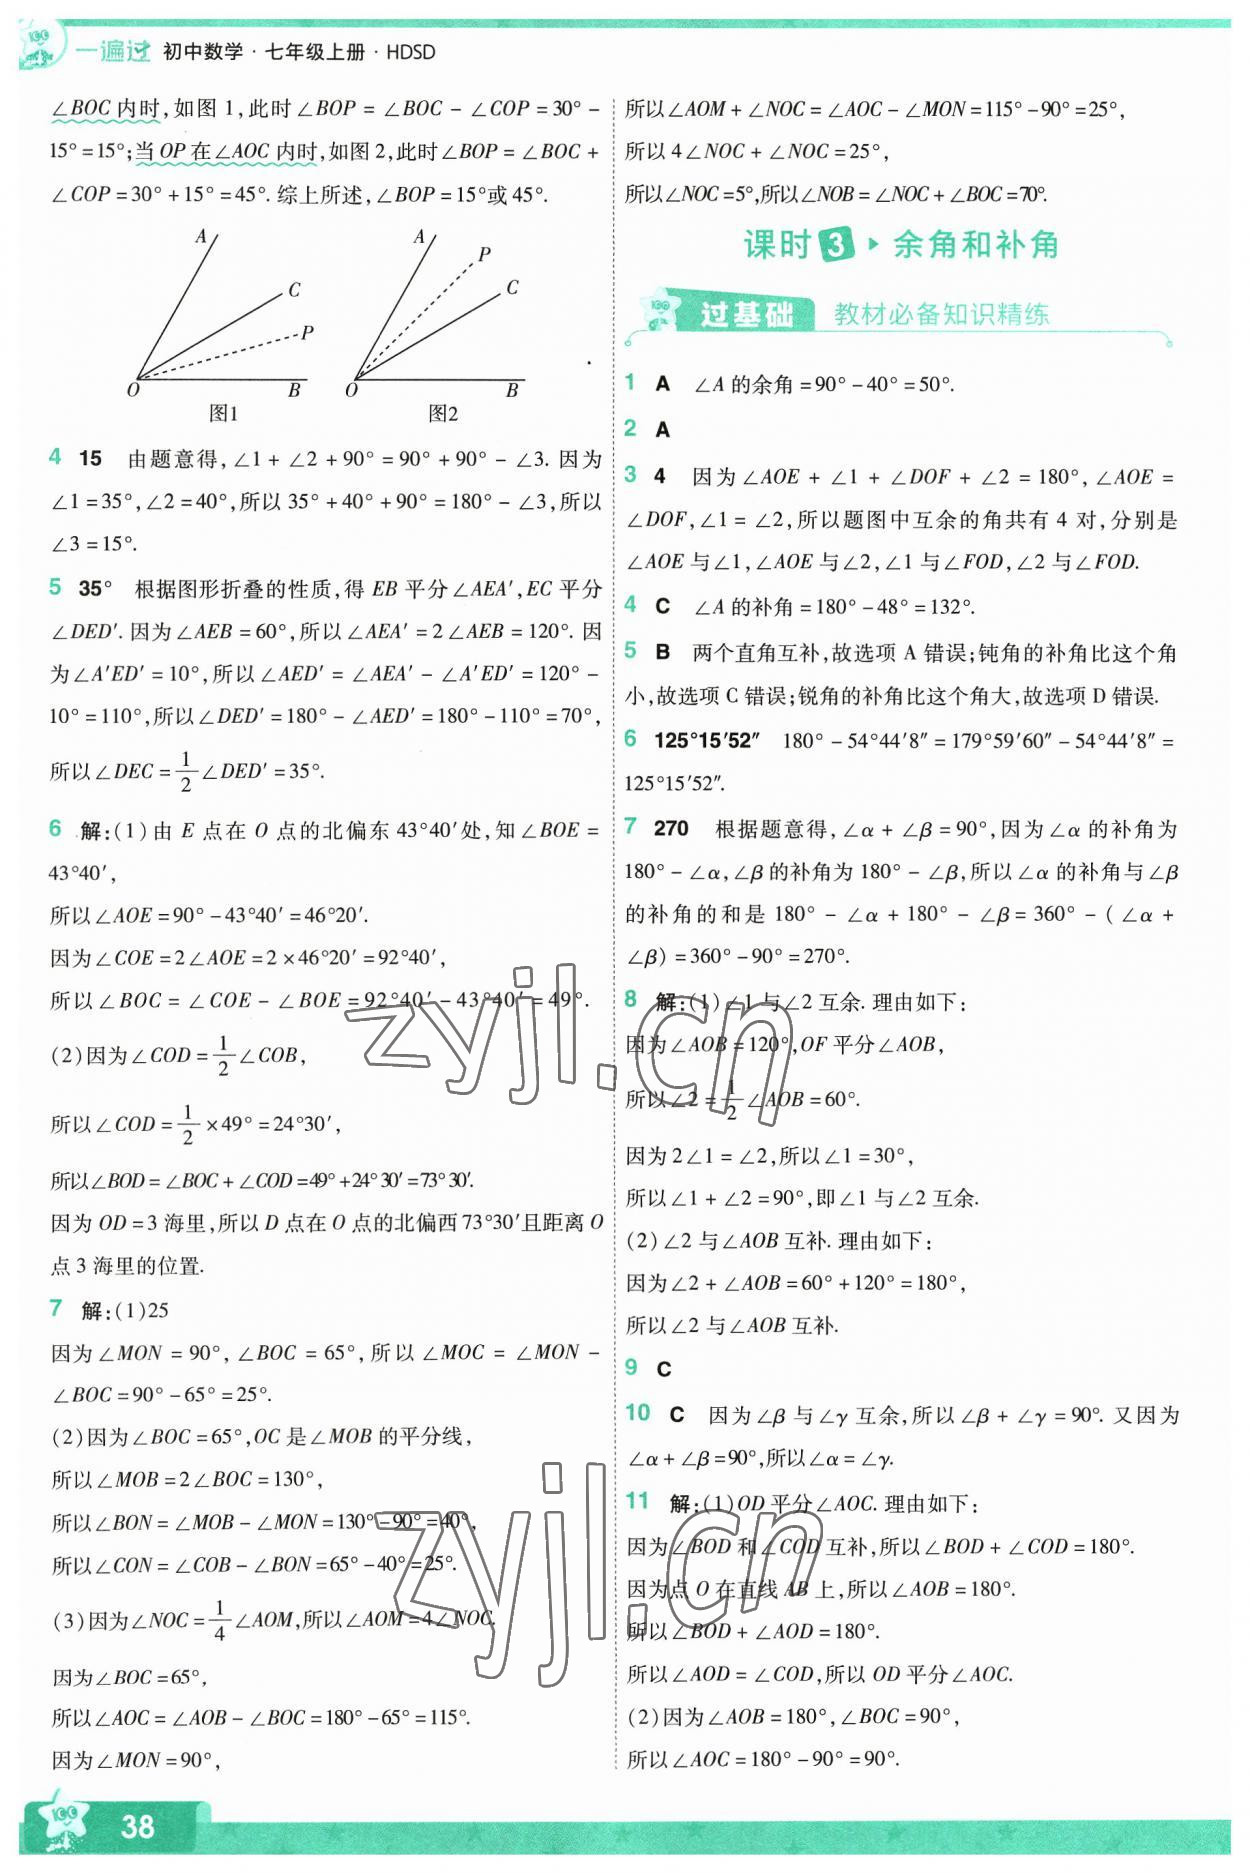 一遍过 初中数学·七年级上册·HDSD
∠BOC 内时,如图 1,此时∠BOP = ∠BOC - ∠COP = 30° -
15° = 15°;当 OP 在∠AOC 内时,如图 2,此时∠BOP = ∠BOC +
∠COP = 30° + 15° = 45°. 综上所述,∠BOP = 15°或 45°.
A
C
P
O
B
图1
A
P
C
O
B
图2
4 15 由题意得,∠1 + ∠2 + 90° = 90° + 90° - ∠3. 因为
∠1 = 35°,∠2 = 40°,所以 35° + 40° + 90° = 180° - ∠3,所以
∠3 = 15°.
5 35° 根据图形折叠的性质,得 EB 平分∠AEA′,EC 平分
∠DED′. 因为∠AEB = 60°,所以∠AEA′ = 2∠AEB = 120°. 因
为∠A′ED′ = 10°,所以∠AED′ = ∠AEA′ - ∠A′ED′ = 120° -
10° = 110°,所以∠DED′ = 180° - ∠AED′ = 180° - 110° = 70°,
所以∠DEC = 1/2∠DED′ = 35°.
6 解:(1)由 E 点在 O 点的北偏东 43°40′处,知∠BOE =
43°40′,
所以∠AOE = 90° - 43°40′ = 46°20′.
因为∠COE = 2∠AOE = 2 × 46°20′ = 92°40′,
所以∠BOC = ∠COE - ∠BOE = 92°40′ - 43°40′ = 49°.
(2)因为∠COD = 1/2∠COB,
所以∠COD = 1/2 × 49° = 24°30′,
所以∠BOD = ∠BOC + ∠COD = 49° + 24°30′ = 73°30′.
因为 OD = 3 海里,所以 D 点在 O 点的北偏西 73°30′且距离 O
点 3 海里的位置.
7 解:(1)25
因为∠MON = 90°,∠BOC = 65°,所以∠MOC = ∠MON -
∠BOC = 90° - 65° = 25°.
(2)因为∠BOC = 65°,OC 是∠MOB 的平分线,
所以∠MOB = 2∠BOC = 130°,
所以∠BON = ∠MOB - ∠MON = 130° - 90° = 40°,
所以∠CON = ∠COB - ∠BON = 65° - 40° = 25°.
(3)因为∠NOC = 1/4∠AOM,所以∠AOM = 4∠NOC.
因为∠BOC = 65°,
所以∠AOC = ∠AOB - ∠BOC = 180° - 65° = 115°.
因为∠MON = 90°,
所以∠AOM + ∠NOC = ∠AOC - ∠MON = 115° - 90° = 25°,
所以 4∠NOC + ∠NOC = 25°,
所以∠NOC = 5°,所以∠NOB = ∠NOC + ∠BOC = 70°.
课时 3 余角和补角
过基础 教材必备知识精练
1 A ∠A 的余角 = 90° - 40° = 50°.
2 A
3 4 因为∠AOE + ∠1 + ∠DOF + ∠2 = 180°,∠AOE =
∠DOF,∠1 = ∠2,所以题图中互余的角共有 4 对,分别是
∠AOE 与∠1,∠AOE 与∠2,∠1 与∠FOD,∠2 与∠FOD.
4 C ∠A 的补角 = 180° - 48° = 132°.
5 B 两个直角互补,故选项 A 错误;钝角的补角比这个角
小,故选项 C 错误;锐角的补角比这个角大,故选项 D 错误.
6 125°15′52″ 180° - 54°44′8″ = 179°59′60″ - 54°44′8″ =
125°15′52″.
7 270 根据题意得,∠α + ∠β = 90°,因为∠α 的补角为
180° - ∠α,∠β 的补角为 180° - ∠β,所以∠α 的补角与∠β
的补角的和是 180° - ∠α + 180° - ∠β = 360° - (∠α +
∠β) = 360° - 90° = 270°.
8 解:(1)∠1 与∠2 互余. 理由如下:
因为∠AOB = 120°,OF 平分∠AOB,
所以∠2 = 1/2∠AOB = 60°.
因为 2∠1 = ∠2,所以∠1 = 30°,
所以∠1 + ∠2 = 90°,即∠1 与∠2 互余.
(2)∠2 与∠AOB 互补. 理由如下:
因为∠2 + ∠AOB = 60° + 120° = 180°,
所以∠2 与∠AOB 互补.
9 C
10 C 因为∠β 与∠γ 互余,所以∠β + ∠γ = 90°. 又因为
∠α + ∠β = 90°,所以∠α = ∠γ.
11 解:(1)OD 平分∠AOC. 理由如下:
因为∠BOD 和∠COD 互补,所以∠BOD + ∠COD = 180°.
因为点 O 在直线 AB 上,所以∠AOB = 180°.
所以∠BOD + ∠AOD = 180°.
所以∠AOD = ∠COD,所以 OD 平分∠AOC.
(2)因为∠AOB = 180°,∠BOC = 90°,
所以∠AOC = 180° - 90° = 90°.
zyjl.cn
zyjl.cn
38